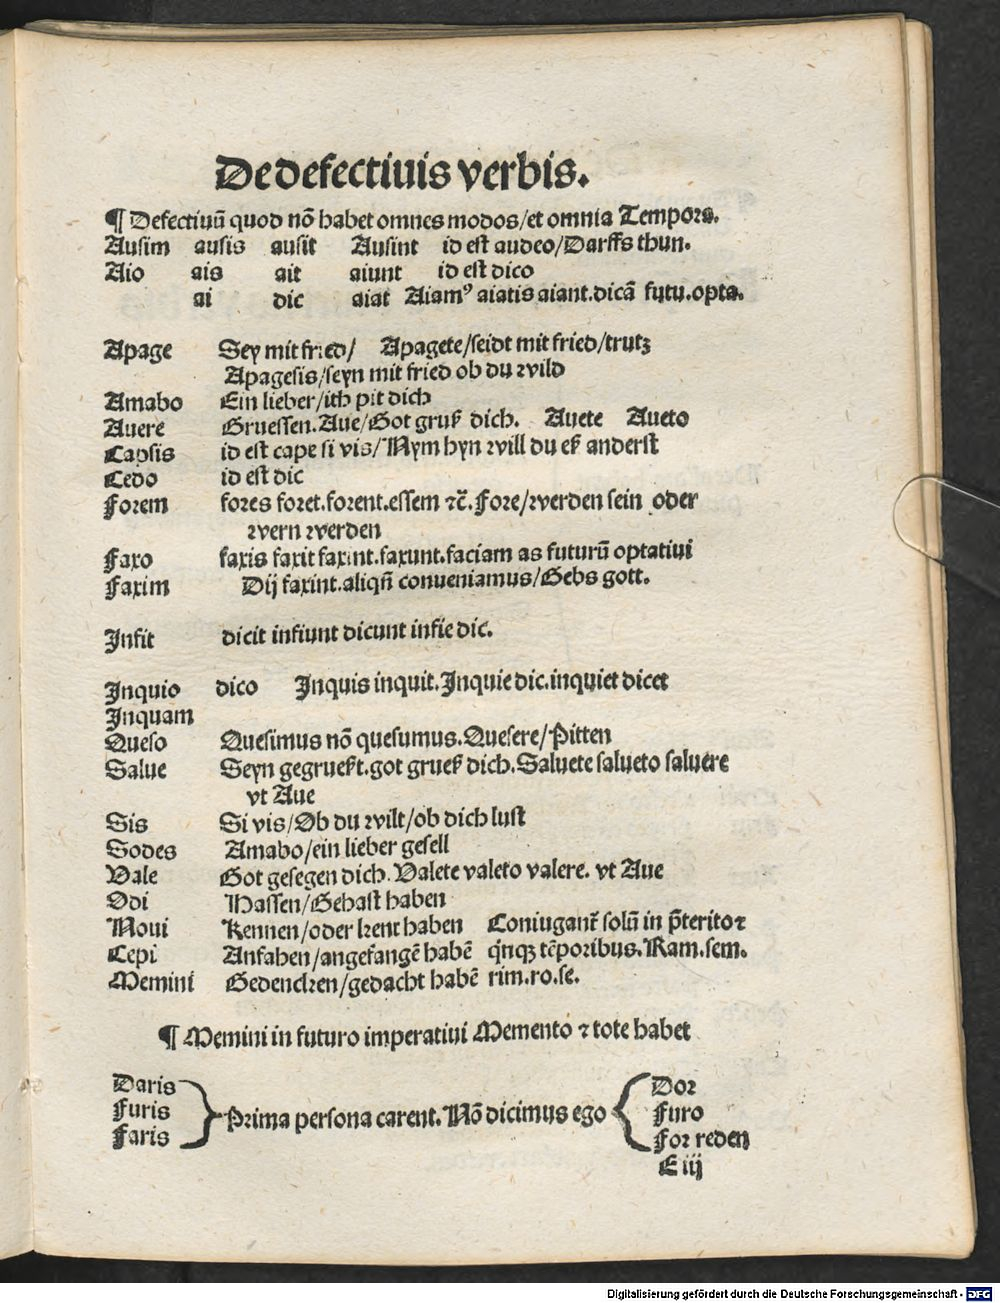 De defectiuis verbis.
¶ Defectiuū quod nō habet omnes modos/et omnia Tempora.
Ausim ausis ausit Ausint id est audeo/Darffs thun.
Aio ais ait aiunt id est dico
ai dic aiat Aiamꝰ aiatis aiant.dicā futu.opta.
Apage Sey mit fried/ Apagete/seidt mit fried/trutz
Apagesis/seyn mit fried ob du wild
Amabo Ein lieber/ich pit dich
Auere Gruessen.Aue/Got gruß dich. Auete Aueto
Capsis id est cape si vis/Nym hyn will du eß anderst
Cedo id est dic
Forem fores foret.forent.essem ⁊c̄.Fore/werden sein oder
wern werden
Faxo faxis faxit faxint.faxunt.faciam as futurū optatiui
Faxim Dij faxint.aliqñ conueniamus/Gebs gott.
Infit dicit infiunt dicunt infie dic.
Inquio dico Inquis inquit.Inquie dic.inquiet dicet
Inquam
Queso Quesimus nō quesumus.Quesere/Pitten
Salue Seyn gegrueßt.got grueß dich.Saluete salueto saluere
vt Aue
Sis Si vis/Ob du wilt/ob dich lust
Sodes Amabo/ein lieber gesell
Vale Got gesegen dich.Valete valeto valere. vt Aue
Odi Hassen/Gehast haben
Noui Kennen/oder kent haben Coniugant̄ solū in p̄terito ⁊
Cepi Anfahen/angefangē habē q̇nqꝫ tēporibus.Ram.sem.
Memini Gedencken/gedacht habē rim.ro.se.
¶ Memini in futuro imperatiui Memento ⁊ tote habet
Daris
Furis
Faris
Prima persona carent.Nō dicimus ego
Dor
Furo
For reden
E iij
Digitalisierung gefördert durch die Deutsche Forschungsgemeinschaft - DFG